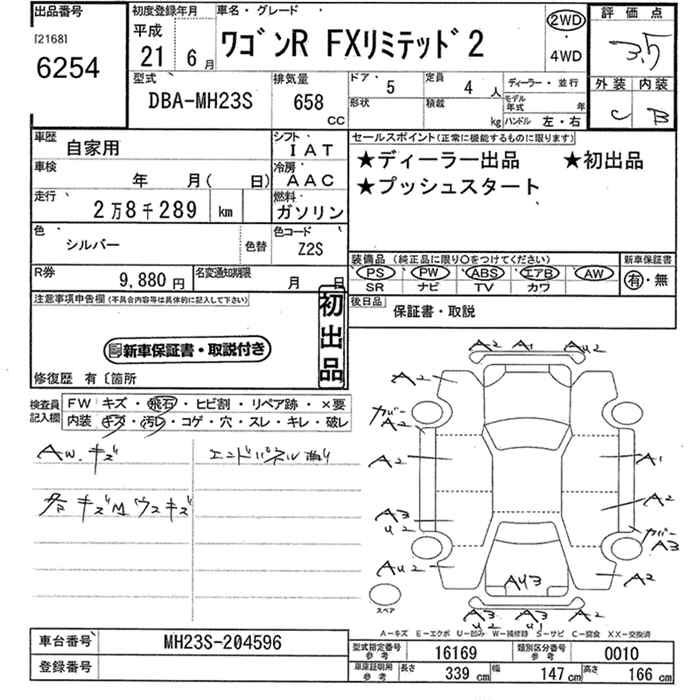 出品番号
[2168]
6254
初度登録年月
平成
21年 6月
車名・グレード
ワゴンR FXリミテッド2
2WD
・
4WD
評価点
3.5
外装 内装
C B
型式
DBA-MH23S
排気量
658
CC
ドア 5
定員 4 人
ディーラー・並行
形状
積載 kg
モデル年式 年
ハンドル 左・右
車歴
自家用
シフト
IAT
車検
年 月( 日)
冷房
AAC
走行
2万8千289 km
燃料
ガソリン
色
シルバー
色替
色コード
Z2S
R券
9,880円
名変通知期限
月 日
セールスポイント(正常に機能するものに限ります)
★ディーラー出品 ★初出品
★プッシュスタート
装備品 (純正品に限り○をつけてください)
PS PW ABS エアB AW
SR ナビ TV カワ
新車保証書
有・無
後日品
保証書・取説
注意事項申告欄(不具合内容等は具体的に記入して下さい)
新車保証書・取説付き
初出品
修復歴 有〔箇所
検査員記入欄
FW キズ・飛石・ヒビ割・リペア跡・×要
内装 キズ・汚レ・コゲ・穴・スレ・キレ・破レ
AW.キズ
エンドパネル曲り
各キズM ウスキズ
A2 A1 AU2
A2
カバー
A2
A2
A3
U2
AU2
A1
A2
カバー
A3
A2
AU3
A3
U2
A3
U1
A2
スペア
A－キズ E－エクボ U－凹み W－補修跡 S－サビ C－腐食 XX－交換済
車台番号
MH23S-204596
登録番号
型式指定番号
参考
16169
類別区分番号
参考
0010
車庫証明用
参考
長さ 339 cm
幅 147 cm
高さ 166 cm